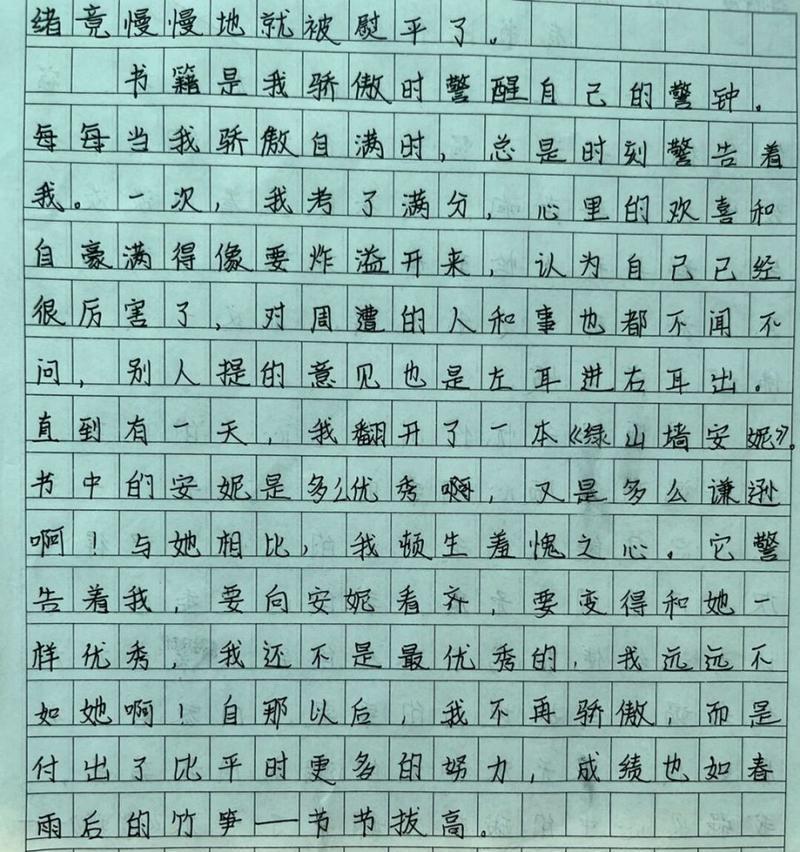 绪竟慢慢地就被慰平了。
书籍是我骄傲时警醒自己的警钟。
每每当我骄傲自满时，总是时刻警告着
我。一次，我考了满分，心里的欢喜和
自豪满得像要炸溢开来，认为自己已经
很厉害了，对周遭的人和事也都不闻不
问，别人提的意见也是左耳进右耳出。
直到有一天，我翻开了一本《绿山墙安妮》。
书中的安妮是多么优秀啊，又是多么谦逊
啊！与她相比，我顿生羞愧之心。它警
告着我，要向安妮看齐，要变得和她一
样优秀，我还不是最优秀的，我远远不
如她啊！自那以后，我不再骄傲，而是
付出了比平时更多的努力，成绩也如春
雨后的竹笋——节节拔高。